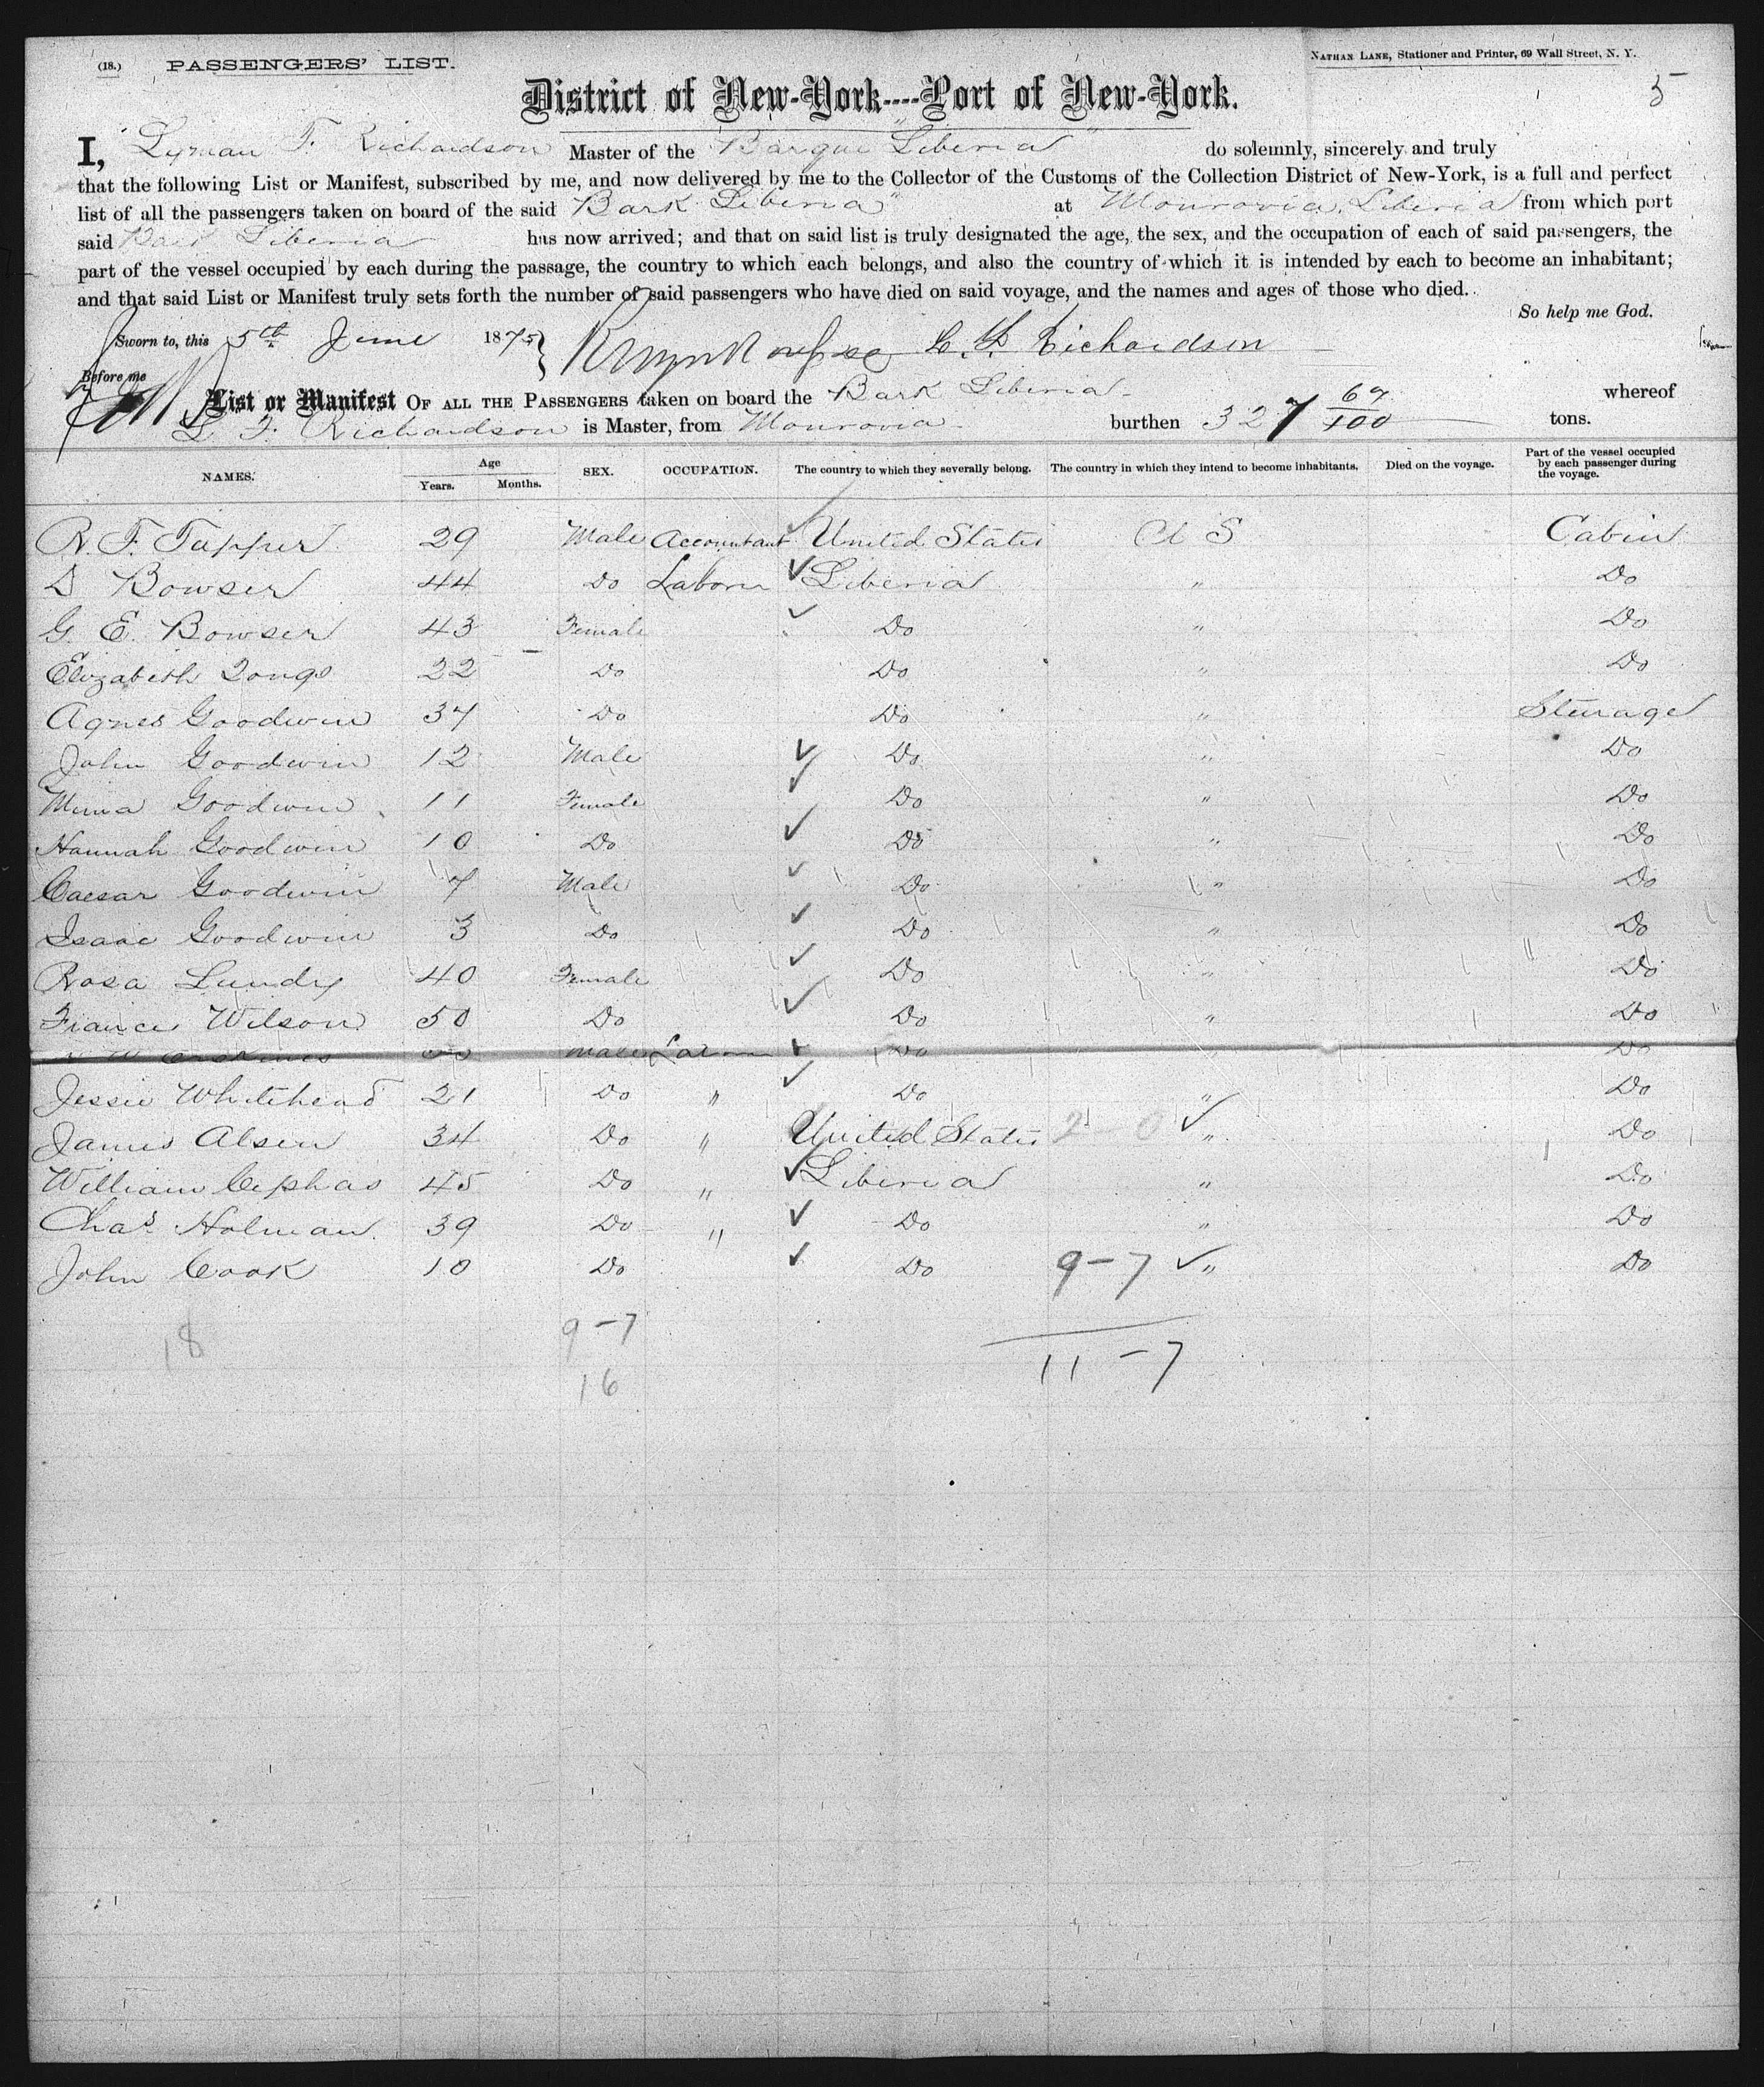 (18.) PASSENGERS' LIST.
NATHAN LANE, Stationer and Printer, 69 Wall Street, N. Y.
5
District of New-York----Port of New-York.
I, Lyman F. Richardson Master of the Barque "Liberia" do solemnly, sincerely and truly
that the following List or Manifest, subscribed by me, and now delivered by me to the Collector of the Customs of the Collection District of New-York, is a full and perfect
list of all the passengers taken on board of the said Bark Liberia" at Monrovia, Liberia from which port
said Bark Liberia has now arrived; and that on said list is truly designated the age, the sex, and the occupation of each of said passengers, the
part of the vessel occupied by each during the passage, the country to which each belongs, and also the country of which it is intended by each to become an inhabitant;
and that said List or Manifest truly sets forth the number of said passengers who have died on said voyage, and the names and ages of those who died.
So help me God.
Sworn to, this 5th June 1875 } L. F. Richardson
Before me
List or Manifest OF ALL THE PASSENGERS taken on board the Bark Liberia whereof
L F. Richardson is Master, from Monrovia burthen 327 69/100 tons.
NAMES. Age Years. Months. SEX. OCCUPATION. The country to which they severally belong. The country in which they intend to become inhabitants. Died on the voyage. Part of the vessel occupied by each passenger during the voyage.
R. F. Tapper 29 Male Accountant United States U S Cabin
D Bowser 44 Do Laborer ✓ Liberia " Do
G. E. Bowser 43 Female ✓ Do " Do
Elizabeth 22 Do Do " Do
Agnes Goodwin 37 Do Do " Sterage
John Goodwin 12 Male ✓ Do " Do
Mima Goodwin 11 Female ✓ Do " Do
Hannah Goodwin 10 Do ✓ Do " Do
Caesar Goodwin 7 Male ✓ Do " Do
Isaac Goodwin 3 Do ✓ Do " Do
Rosa Lundy 40 Female ✓ Do " Do
Frances Wilson 50 Do ✓ Do " Do
Male Do Do
Jessie Whitehead 21 Do " ✓ Do " Do
James Alsen 34 Do " United States 2-0 ✓ " Do
William Cephas 45 Do " ✓ Liberia " Do
Chas Holman 39 Do " ✓ Do " Do
John Cook 10 Do ✓ Do 9-7 ✓ " Do
18 9-7 11-7
16